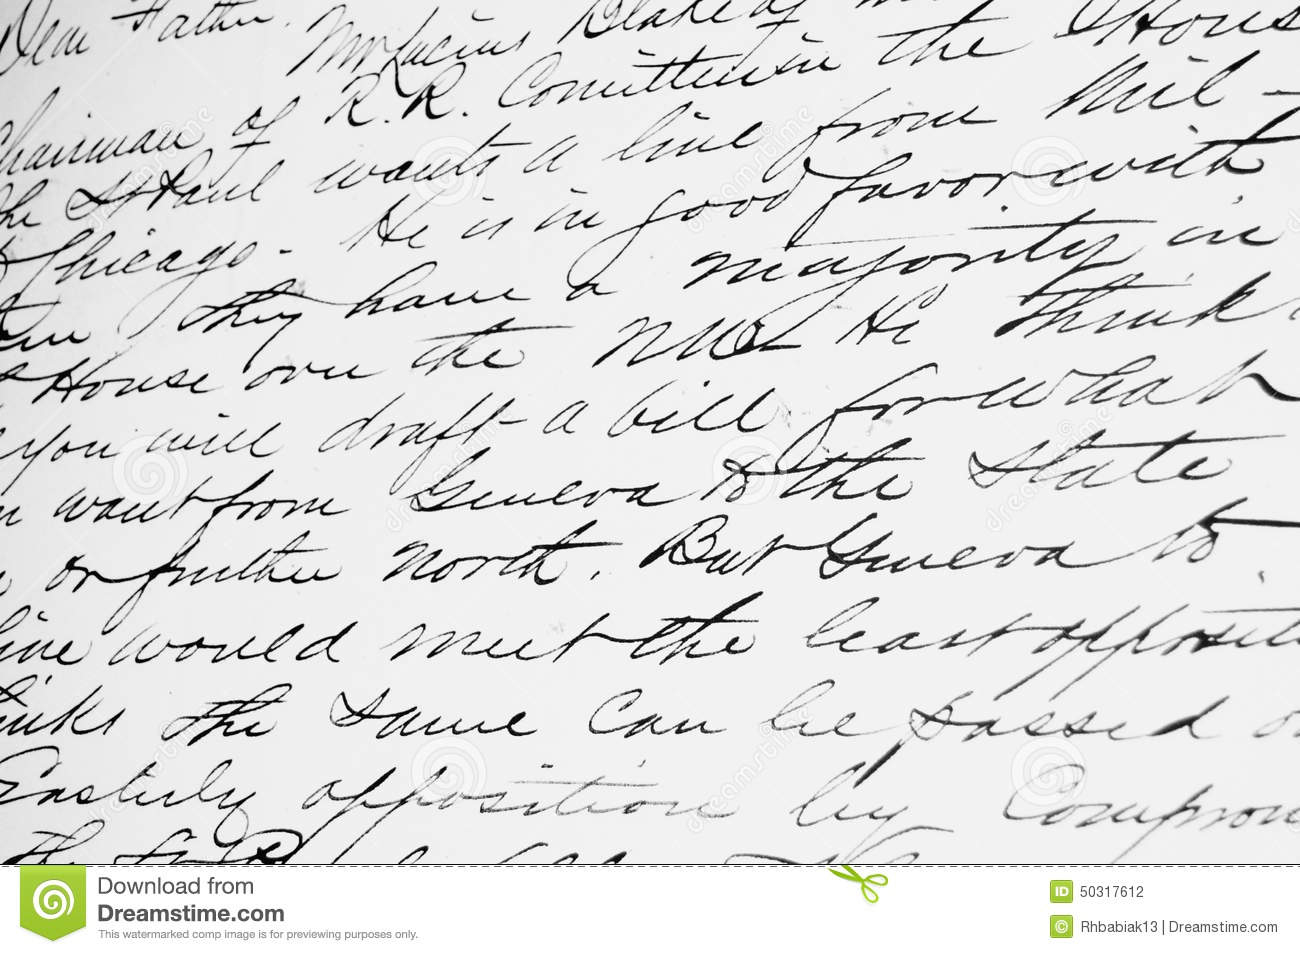 Dear Father.
Mr Lucius Blake of
Chairman of R.R. Committee in the House
the St Paul wants a line from Mil-
Chicago. He is in good favor with
they have a majority in
House over the He thinks
you will draft a bill for what
want from Geneva to the State
or further north. But Geneva to
line would meet the least opposit
thinks the same can be passed
Easterly opposition by Comprom
the
Download from
Dreamstime.com
This watermarked comp image is for previewing purposes only.
ID 50317612
© Rhbabiak13 | Dreamstime.com